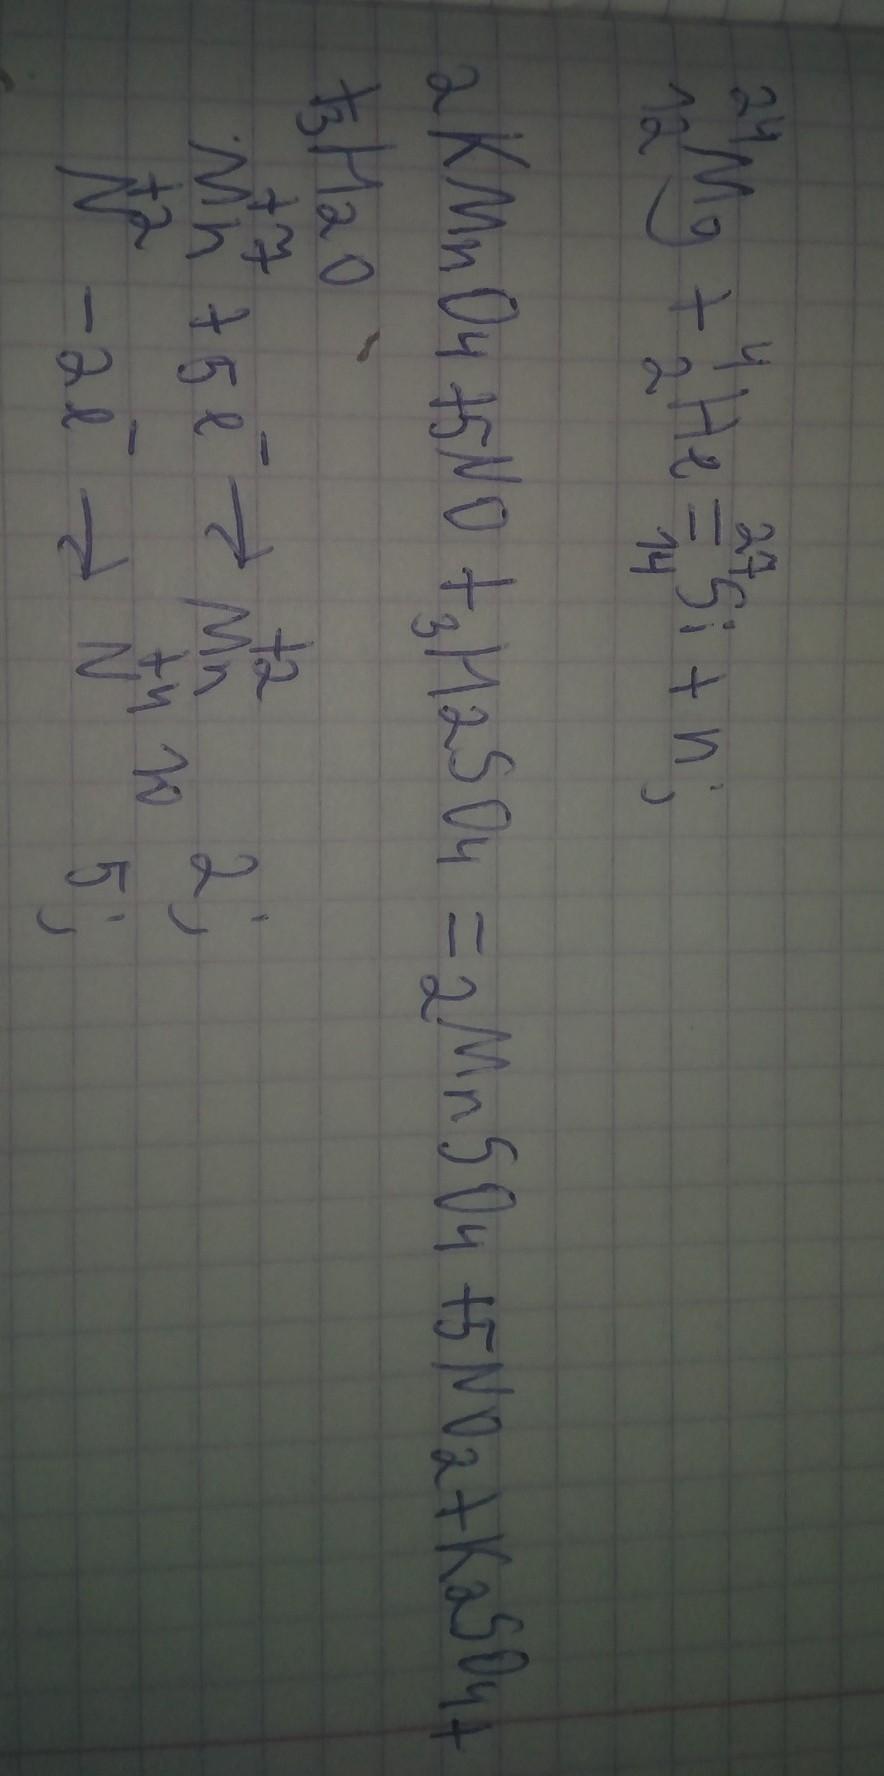 ²⁴₁₂Mg + ⁴₂He = ²⁷₁₄Si + n;
2KMnO4 + 5NO + 3H2SO4 = 2MnSO4 + 5NO2 + K2SO4 +
+3H2O
Mn⁺⁷ + 5e⁻ → Mn⁺² 2;
10
N⁺² - 2e⁻ → N⁺⁴ 5;